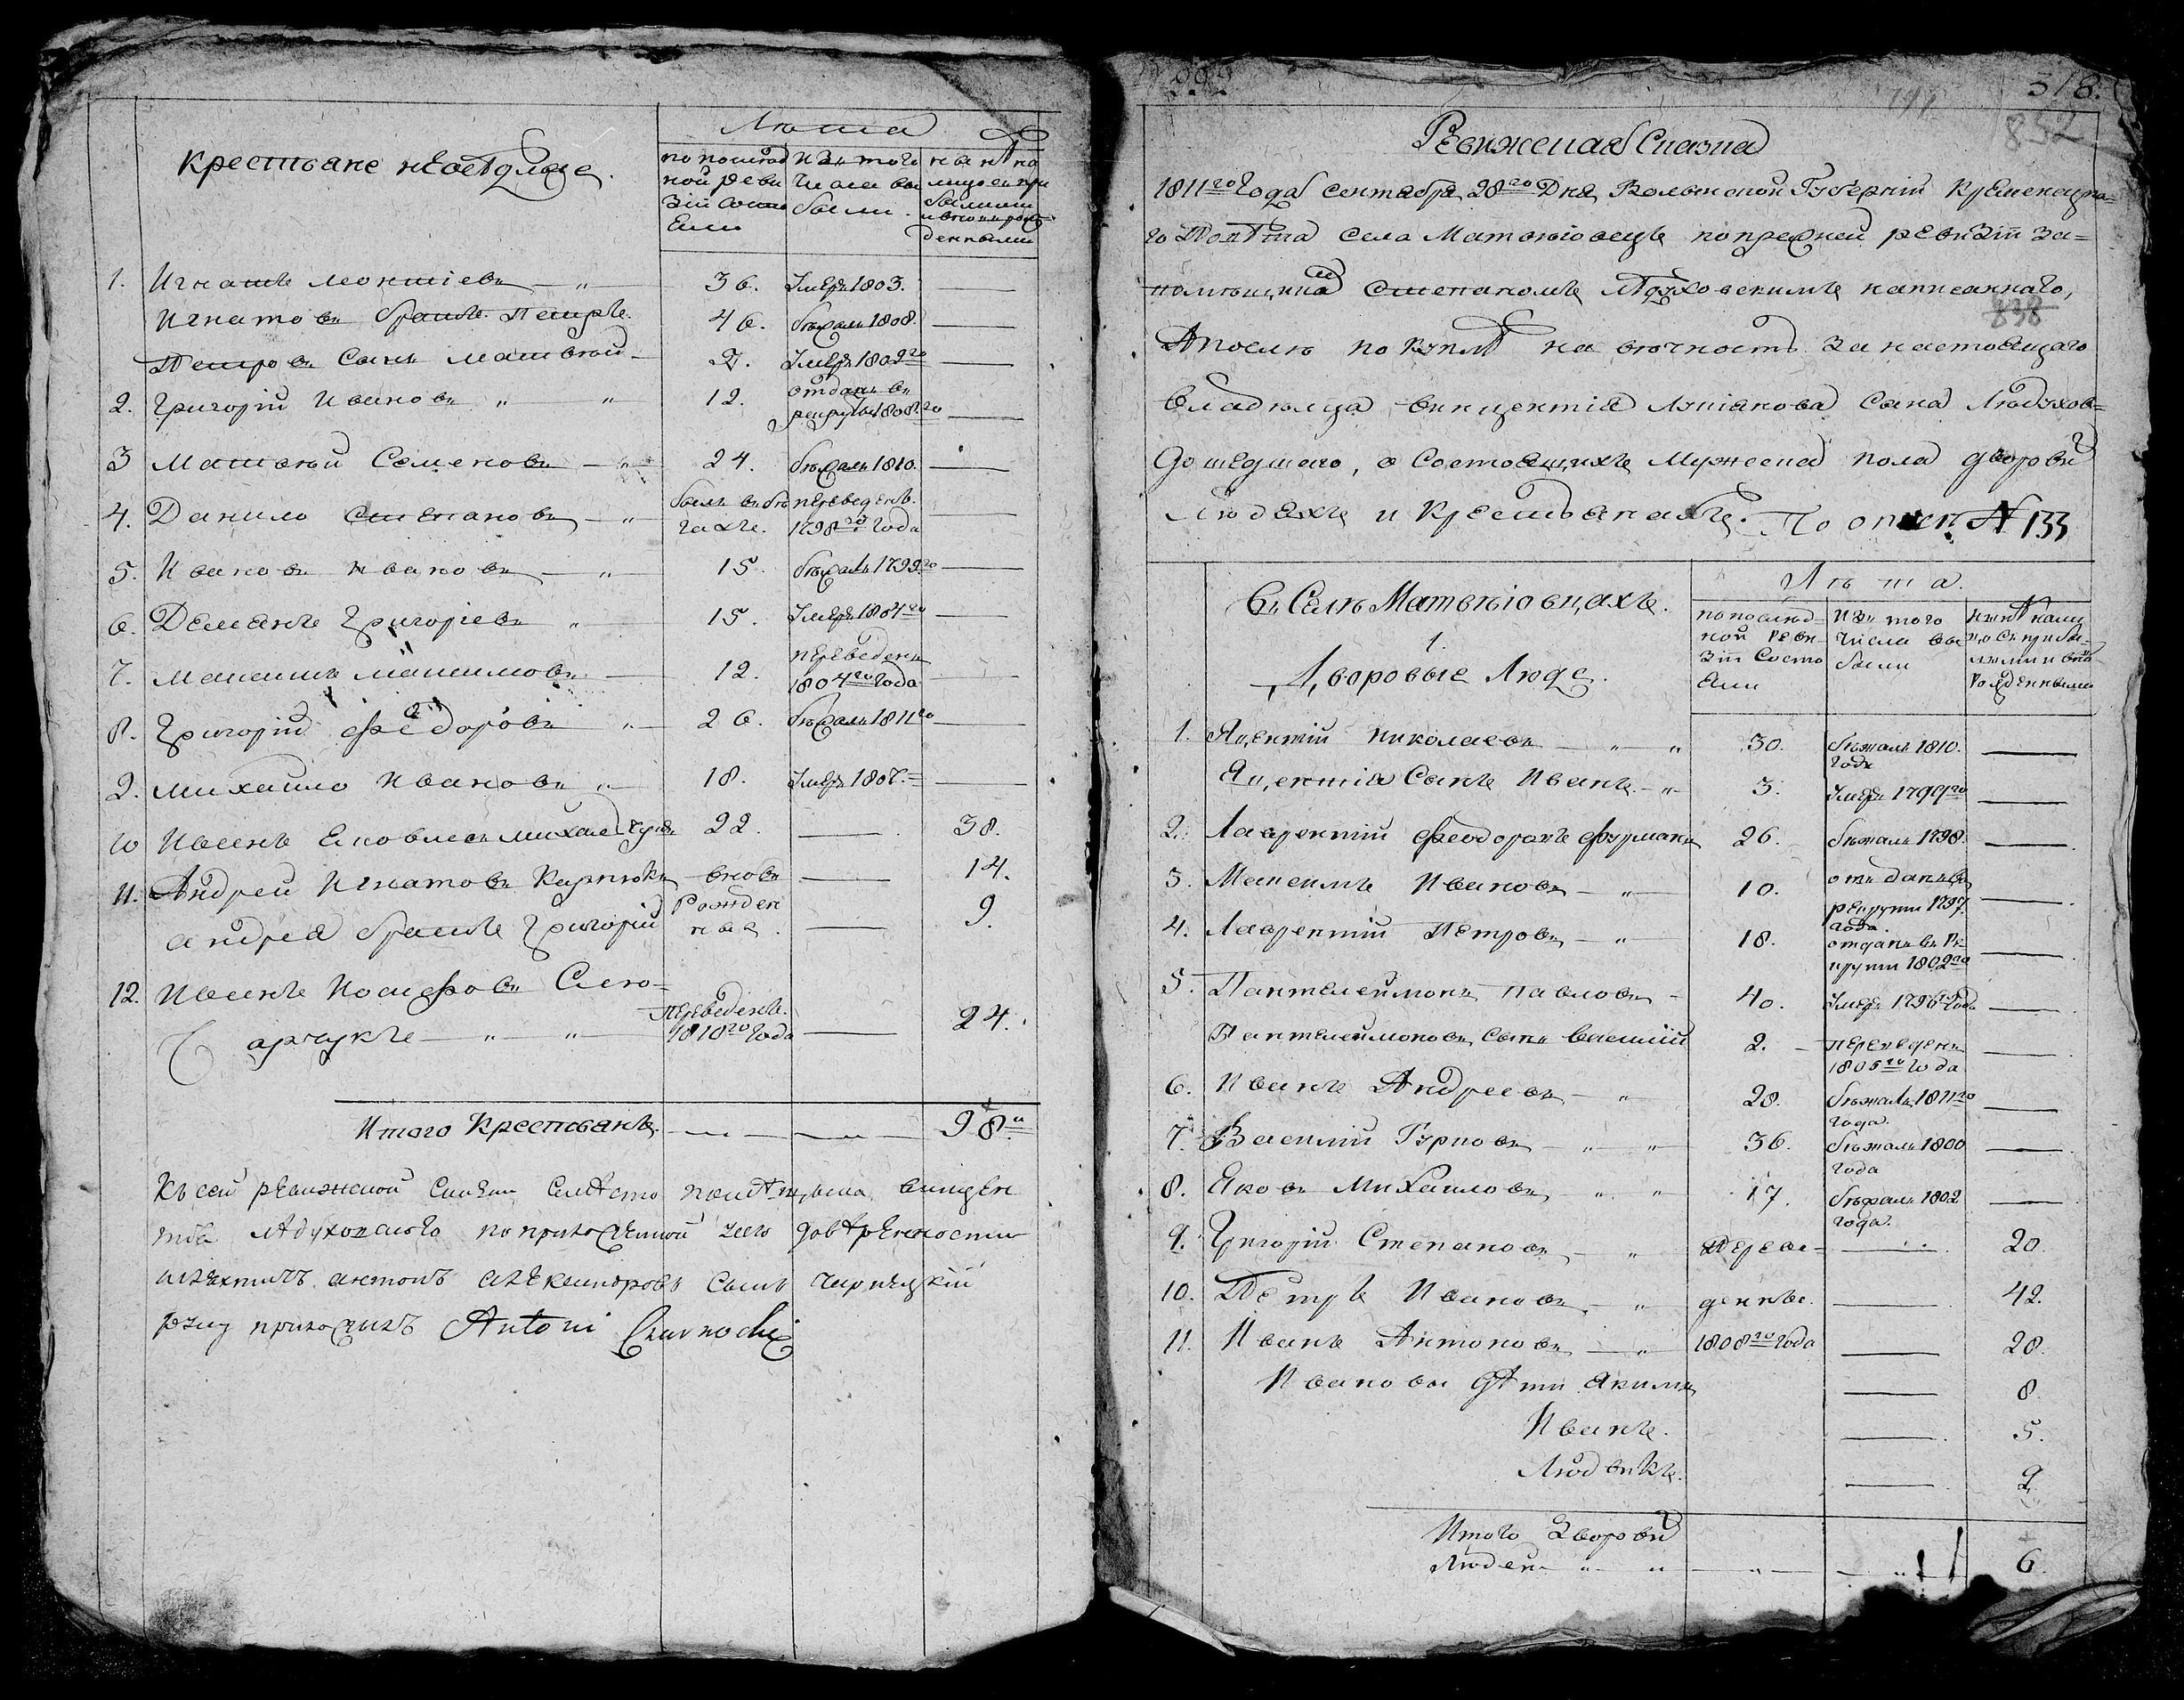 Крестьяне неоседлые.
Лѣта
по послѣд
ной реви
зіи состо
яли
изъ того
числа вы
были
нынѣ на
лицо съ при
былыми
и вновь рож
денными
1. Игнатъ Леонтіевъ — 36. Умеръ 1803. —
Игнатовъ братъ Петръ. 46. бѣжалъ 1808. —
Петровъ Сынъ Матвѣй — 2. Умеръ 1802го —
2. Григорій Ивановъ 12. отданъ въ
рекруты 1808го —
3 Матвѣй Семеновъ — 24. бѣжалъ 1810. —
4. Данило Степановъ — былъ въ бѣ переведенъ.
гахъ. 1798го года —
5. Ивановъ Ивановъ — 15. бѣжалъ 1799го —
6. Демянъ Григоріевъ 15. Умеръ 1804го —
7. Максимъ Максимовъ — 12. переведенъ
1804го года —
8. Григорій Федоровъ 26. бѣжалъ 1811го —
9. Михайло Ивановъ 18. Умеръ 1807. —
10 Иванъ Яковлевъ 22. — 38.
11. Андрей Игнатовъ вновь — 14.
Андрея братъ Григорій рожден
ные. — 9.
12. Иванъ Иосифовъ переведенъ.
1810го года — 24.
Итого Крестьянъ. — — 98.
Къ сей ревижской Сказки вмѣсто помѣщика Винцен
тія Лѣдуховского по приложенной у сего довѣренности
шляхтичъ Антонъ Александровъ Сынъ Чарнецкій
руку приложилъ Antoni Czarnecki
518.
832
Ревижская Сказка
1811го Года Сентября 28го Дня Волынской Губерніи Кременецка=
го Повѣта Села Матвѣювецъ по прежней ревизіи за=
помѣщикомъ Степаномъ Лѣдуховскимъ написаннаго,
838
А послѣ по куплѣ на вѣчность за настоящаго
владѣльца Винцентія Сына Лѣдухов=
дошедшаго, о состоящихъ мужеска пола дворовы
людяхъ и крестьянахъ. По описи № 133
Въ Селѣ Матвѣювцахъ.
1.
Дворовые Люде.
Лѣта.
по послѣд=
ной реви=
зіи состо
яли
изъ того
числа вы
были
нынѣ нали
цо съ прибы=
лыми и вно
рожденными
1. Яцентій Николаевъ — 30. бѣжалъ 1810.
годъ —
Яцентія Сынъ Иванъ. — 3. Умеръ 1799го —
2. Лаврентій Феодоровъ Фурманъ 26. бѣжалъ 1798. —
3. Максимъ Ивановъ — 10. отданъ въ
рекруты 1797.
года. —
4. Лаврентій Петровъ — 18. отданъ въ ре
круты 1802го —
5. Пантелеймонъ Павловъ — 40. Умеръ 1796 года —
Пантелеймоновъ Сынъ Василій 2. — переведенъ
1805го года —
6. Иванъ Андреевъ — 28. бѣжалъ 1811го
года. —
7. Василій Гурковъ — 36. бѣжалъ 1800
года —
8. Яковъ Михайловъ — 17. бѣжалъ 1802
года. —
9. Григорій Степановъ — переве= — 20.
10. Петръ Ивановъ — денные. — 42.
11. Иванъ Антоновъ — 1808го года — 28.
Ивановы дѣти Якимъ — 8.
Иванъ. — 5.
Людвикъ. — 2.
Итого Дворовы
людей — — 6